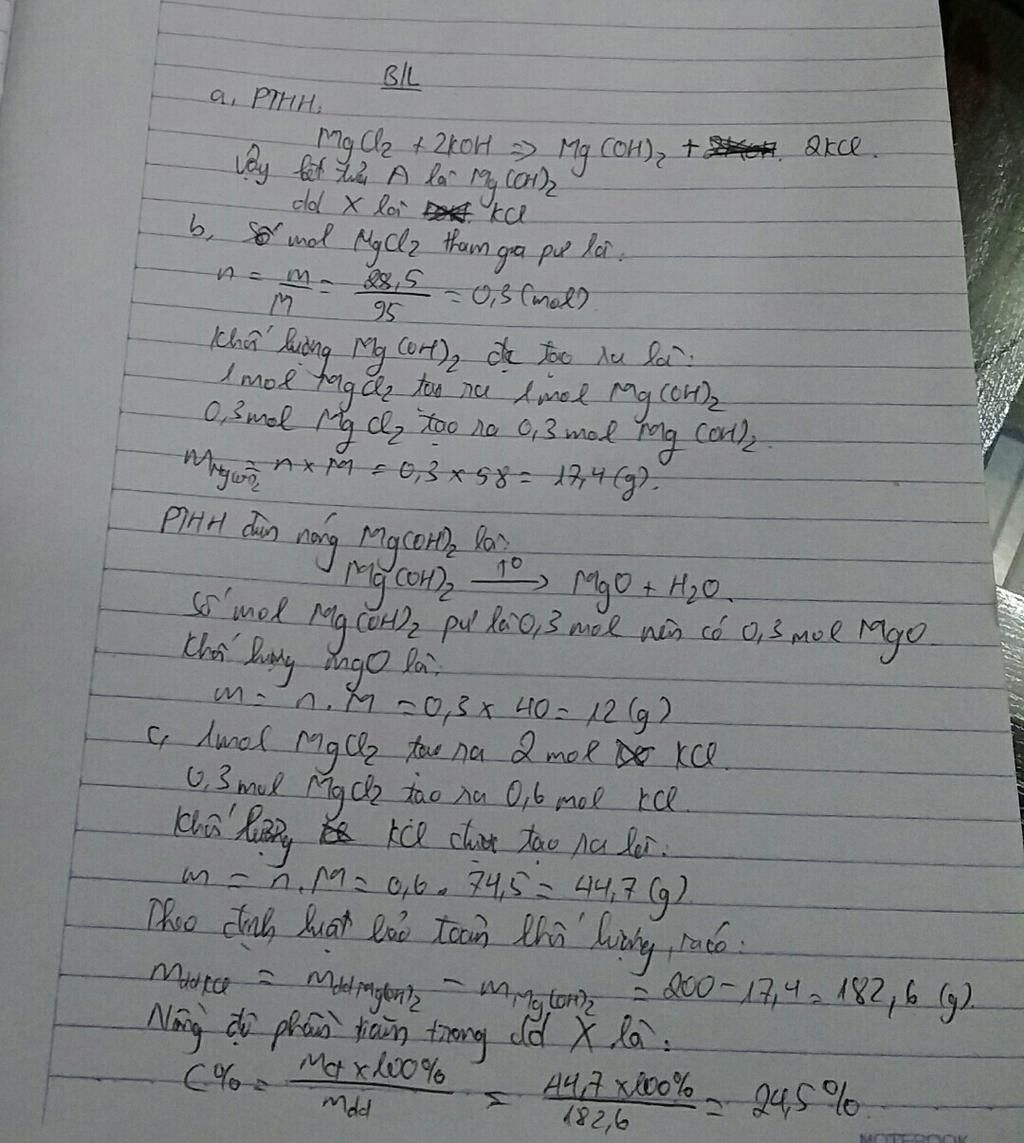 B/L
a, PTHH:
MgCl2 + 2KOH => Mg(OH)2 + 2KCl.
Vậy kết tủa A là Mg(OH)2
dd X là KCl
b, Số mol MgCl2 tham gia pư là:
n = m/M = 28,5/95 = 0,3 (mol)
Khối lượng Mg(OH)2 đc tạo ra là:
1mol MgCl2 tạo ra 1mol Mg(OH)2
0,3mol MgCl2 tạo ra 0,3 mol Mg(OH)2.
mMg(OH)2 = n x M = 0,3 x 58 = 17,4 (g).
PTHH đun nóng Mg(OH)2 là:
Mg(OH)2 —t°→ MgO + H2O.
số mol Mg(OH)2 pư là 0,3 mol nên có 0,3 mol MgO.
Khối lượng MgO là:
m = n.M = 0,3 x 40 = 12 (g)
c, 1mol MgCl2 tạo ra 2 mol KCl.
0,3mol MgCl2 tạo ra 0,6 mol KCl.
Khối lượng KCl được tạo ra là:
m = n.M = 0,6 . 74,5 = 44,7 (g)
Theo định luật bảo toàn khối lượng, ta có:
mdd KCl = mdd Mg(OH)2 - mMg(OH)2 = 200 - 17,4 = 182,6 (g).
Nồng độ phần trăm trong dd X là:
C% = mct x 100%/mdd = 44,7 x 100%/182,6 = 24,5%
NOTEBOOK